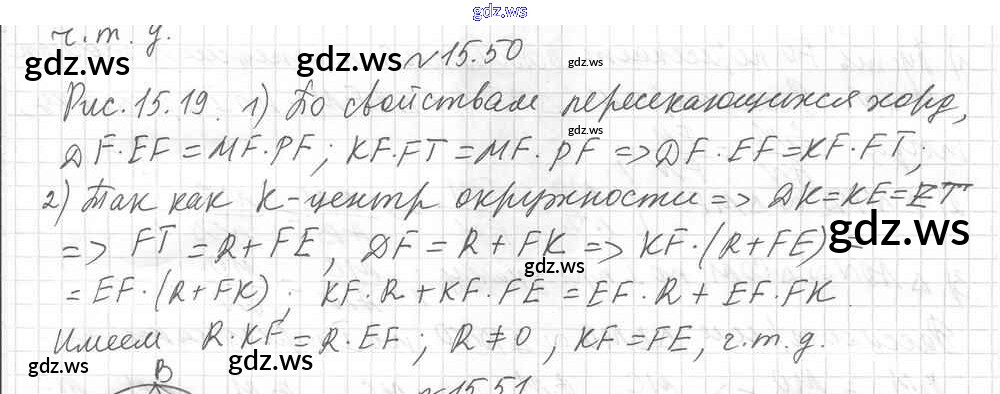 gdz.ws
ч.т.д.
gdz.ws gdz.ws №15.50 gdz.ws
Рис. 15.19. 1) По свойствам пересекающихся хорд,
gdz.ws
DF·EF = MF·PF; KF·FT = MF·PF => DF·EF = KF·FT;
2) Так как K-центр окружности => DK=KE=ET
gdz.ws
=> FT = R + FE, DF = R + FK => KF·(R+FE) =
gdz.ws
= EF·(R+FK); KF·R + KF·FE = EF·R + EF·FK
Имеем R·KF = R·EF; R ≠ 0, KF = FE, ч.т.д.
gdz.ws gdz.ws
B
№15.51